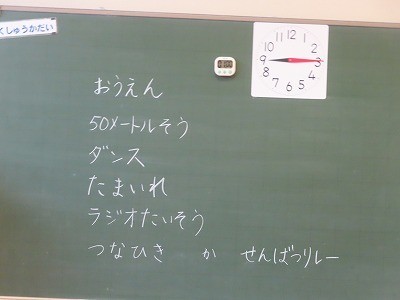 くしゅうかだい
おうえん
50メートルそう
ダンス
たまいれ
ラジオたいそう
つなひき か せんばつリレー
12
11 1
10 2
9 3
8 4
7 6 5